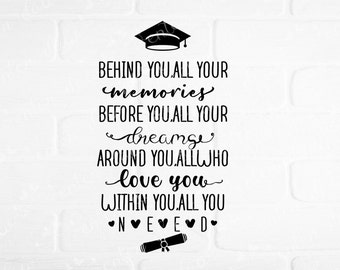 BEHIND YOU.ALL YOUR
memories
BEFORE YOU.ALL YOUR
dreams
AROUND YOU.ALLWHO
love you
WITHIN YOU.ALL YOU
N♥E♥E♥D